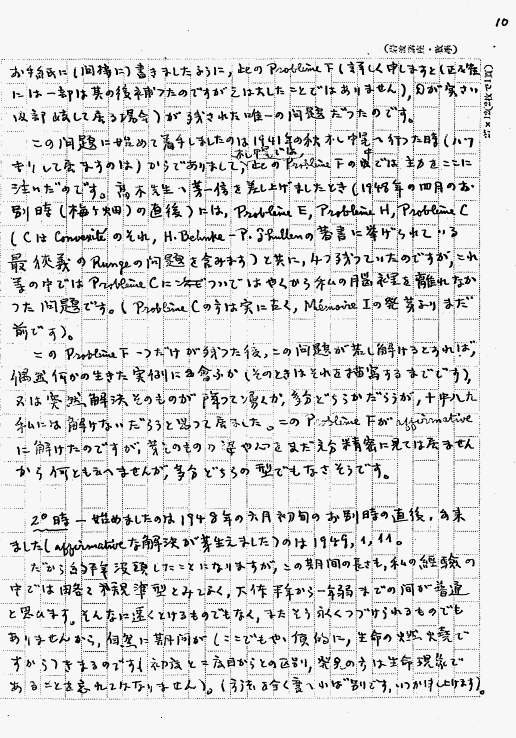 10
お手紙に(間接に)書きましたように、此の Problème F (詳しく申しますと(正確
には一部は其の後補つたのですが之は大したことではありません)、
分岐して居る場合)が残された唯一の問題だつたのです。
この問題に始めて着手しましたのは1941年の秋札幌へ行つた時(ハツ
キリして居ますのは)からでありまして、札幌では、此の Problème F の 主力をここに
注いだのです。高木先生へ第一信を差上げましたとき(1948年の四月のお
別時(梅ヶ畑)の直後)には、Problème E, Problème H, Problème C
(C は Convexité のそれ, H. Behnke – P. Thullen の著書に挙げられている
最狭義の Runge の問題を含みます)と共に、4つ残つていたのですが、これ
等の中では Problème C に ついではやくから私の脳裡を離れなか
つた問題です。(Problème C の方は実に古く、Mémoire I の発芽よりまだ
前です)。
この Problème F 一つだけが残つた後、この問題が若し解けるとすれば、
偶然何かの生きた実例に出会ふか(そのときはそれを描写するまでです)、
又は突然解法そのものが降つて湧くか、多分どちらかだらうが、十中八九
私には解けないだらうと思つて居ました。この Problème F が affirmative
に解けたのですが、 まだ充分精密に見ては居ません
から何とも云へませんが、多分どちらの型でもなささうです。
2° 時 – 始めましたのは1948年の六月初旬のお別時の直後、出来
ました(affirmative な解決が芽生えました)のは1949, 1, 11.
だから約半年没頭したことになりますが、この期間の長さも、私の経験の
中では略々 標準型とみてよく、大体半年から一年弱までの間が普通
と思ひます。そんなに速くとけるものでもなく、またそう永くつづけられるものでも
ありませんから、自然に期間が(ここでもやい 的に、生命の燃焼で
すから)きまるのです(初改と二度目からとの区別、発見の方は生命現象で
あることを忘れてはなりません)。(方法を全く変へれば別です、いつか申し上げます)。